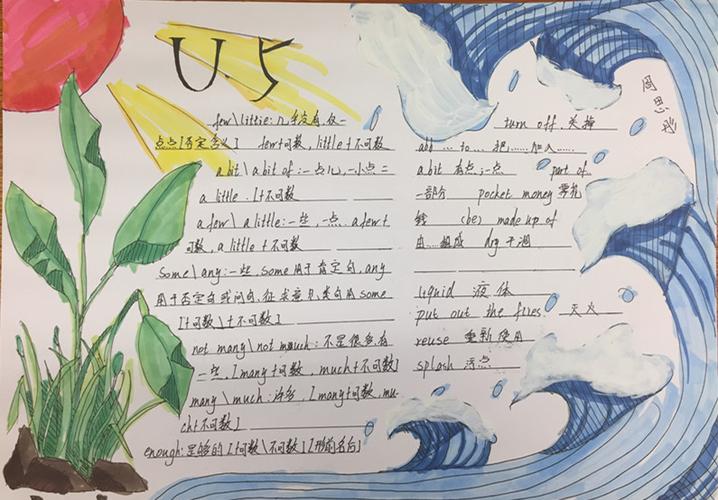 U.5
周思
few\little:几乎没有,仅一
点点[否定含义] few+可数,little+不可数
a bit\a bit of:一点儿,一小点=
a little.[+不可数
a few\a little:一些,一点.a few+
可数,a little+不可数
Some\any:一些,some用于肯定句,any
用于否定句或问句,征求意见,类句用some
[+可数\+不可数]
not many\not much:不是很多,有
一些,[many+可数,much+不可数]
many\much:许多,[many+可数,mu-
ch+不可数]
enough:足够的[+可数\不可数][形前名后]
turn off 关掉
add … to … 把……加入……
a bit 有点;一点 part of
一部分 pocket money 零花
钱 (be) made up of
由……组成 dry 干涸
liquid 液体
put out the fires 灭火
reuse 重新使用
splash 污点